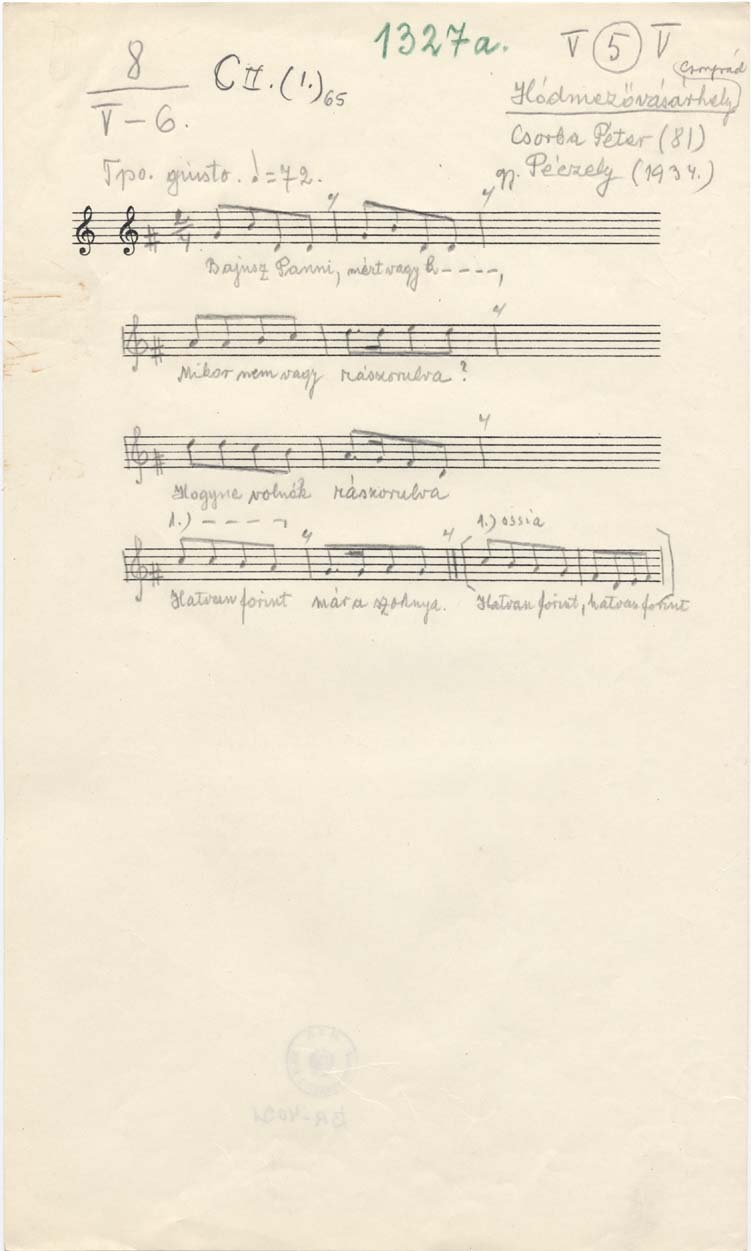 1327a.
8
V – 6.
C II. (1.) 65
V 5 V
Csongrád
Hódmezővásárhely
Csorba Péter (81)
gy. Péczely (1934.)
Tpo. giusto. ♩=72.
2/4
Bajusz Panni, mért vagy k----,
Mikor nem vagy rászorulva?
Hogyne volnék rászorulva
1.) – – – – ¬
1.) ossia
Hatvan forint már a szoknya. Hatvan forint, hatvan forint
BR-